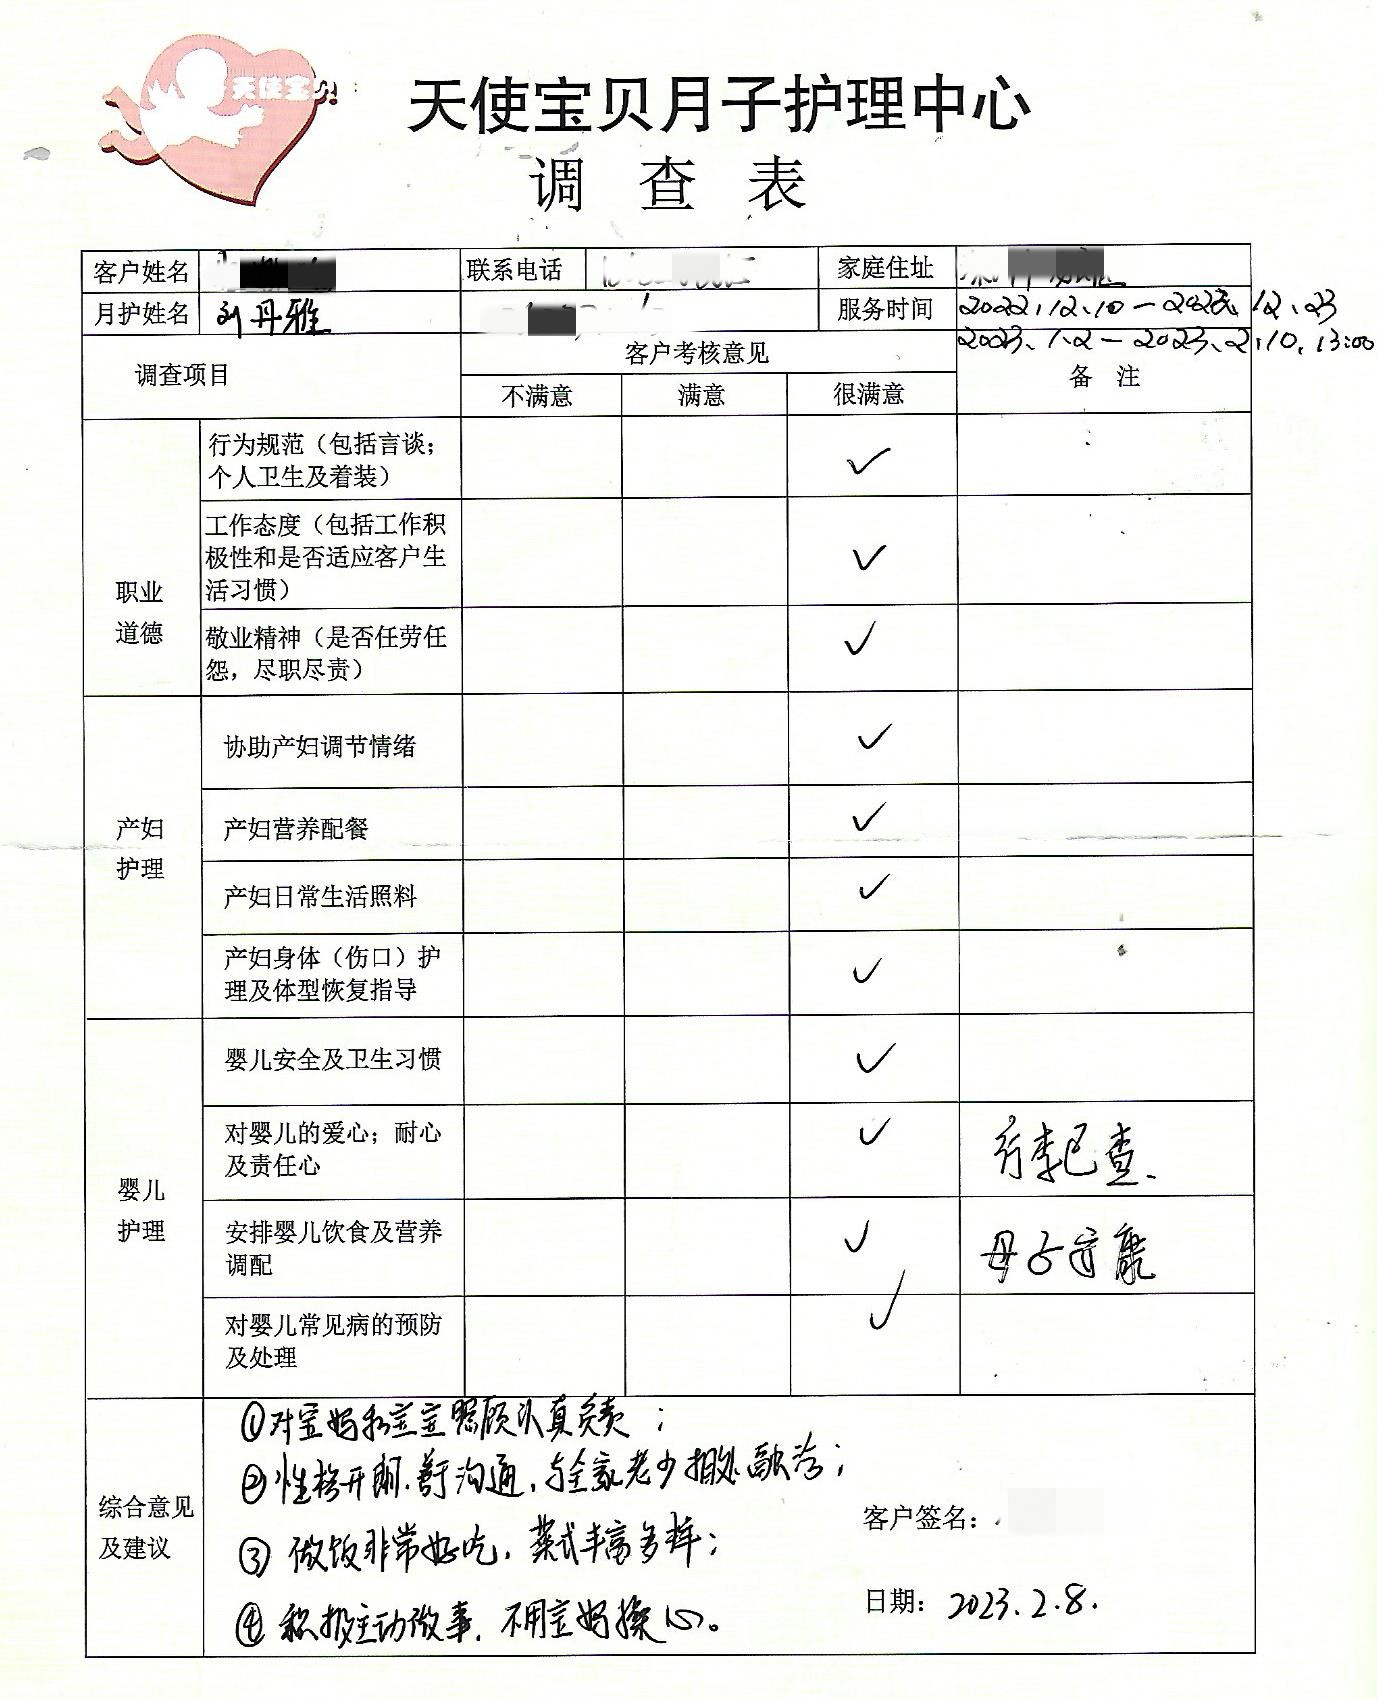 天使宝贝
天使宝贝月子护理中心
调 查 表
客户姓名 联系电话 家庭住址
月护姓名 刘丹雅 服务时间 2022.12.10-2022.12.23
2023.1.2-2023.2.10.13:00
调查项目 客户考核意见 备 注
不满意 满意 很满意
职业
道德
行为规范(包括言谈;
个人卫生及着装) ✓
工作态度(包括工作积
极性和是否适应客户生
活习惯) ✓
敬业精神(是否任劳任
怨,尽职尽责) ✓
产妇
护理
协助产妇调节情绪 ✓
产妇营养配餐 ✓
产妇日常生活照料 ✓
产妇身体(伤口)护
理及体型恢复指导 ✓
婴儿
护理
婴儿安全及卫生习惯 ✓
对婴儿的爱心;耐心
及责任心 ✓ 行李已查.
安排婴儿饮食及营养
调配 ✓ 母子安康
对婴儿常见病的预防
及处理 ✓
综合意见
及建议
①对宝妈和宝宝照顾认真负责;
②性格开朗.善于沟通,与全家老少相处融洽;
③做饭非常好吃,菜式丰富多样;
④积极主动做事,不用宝妈操心。
客户签名:
日期:2023.2.8.